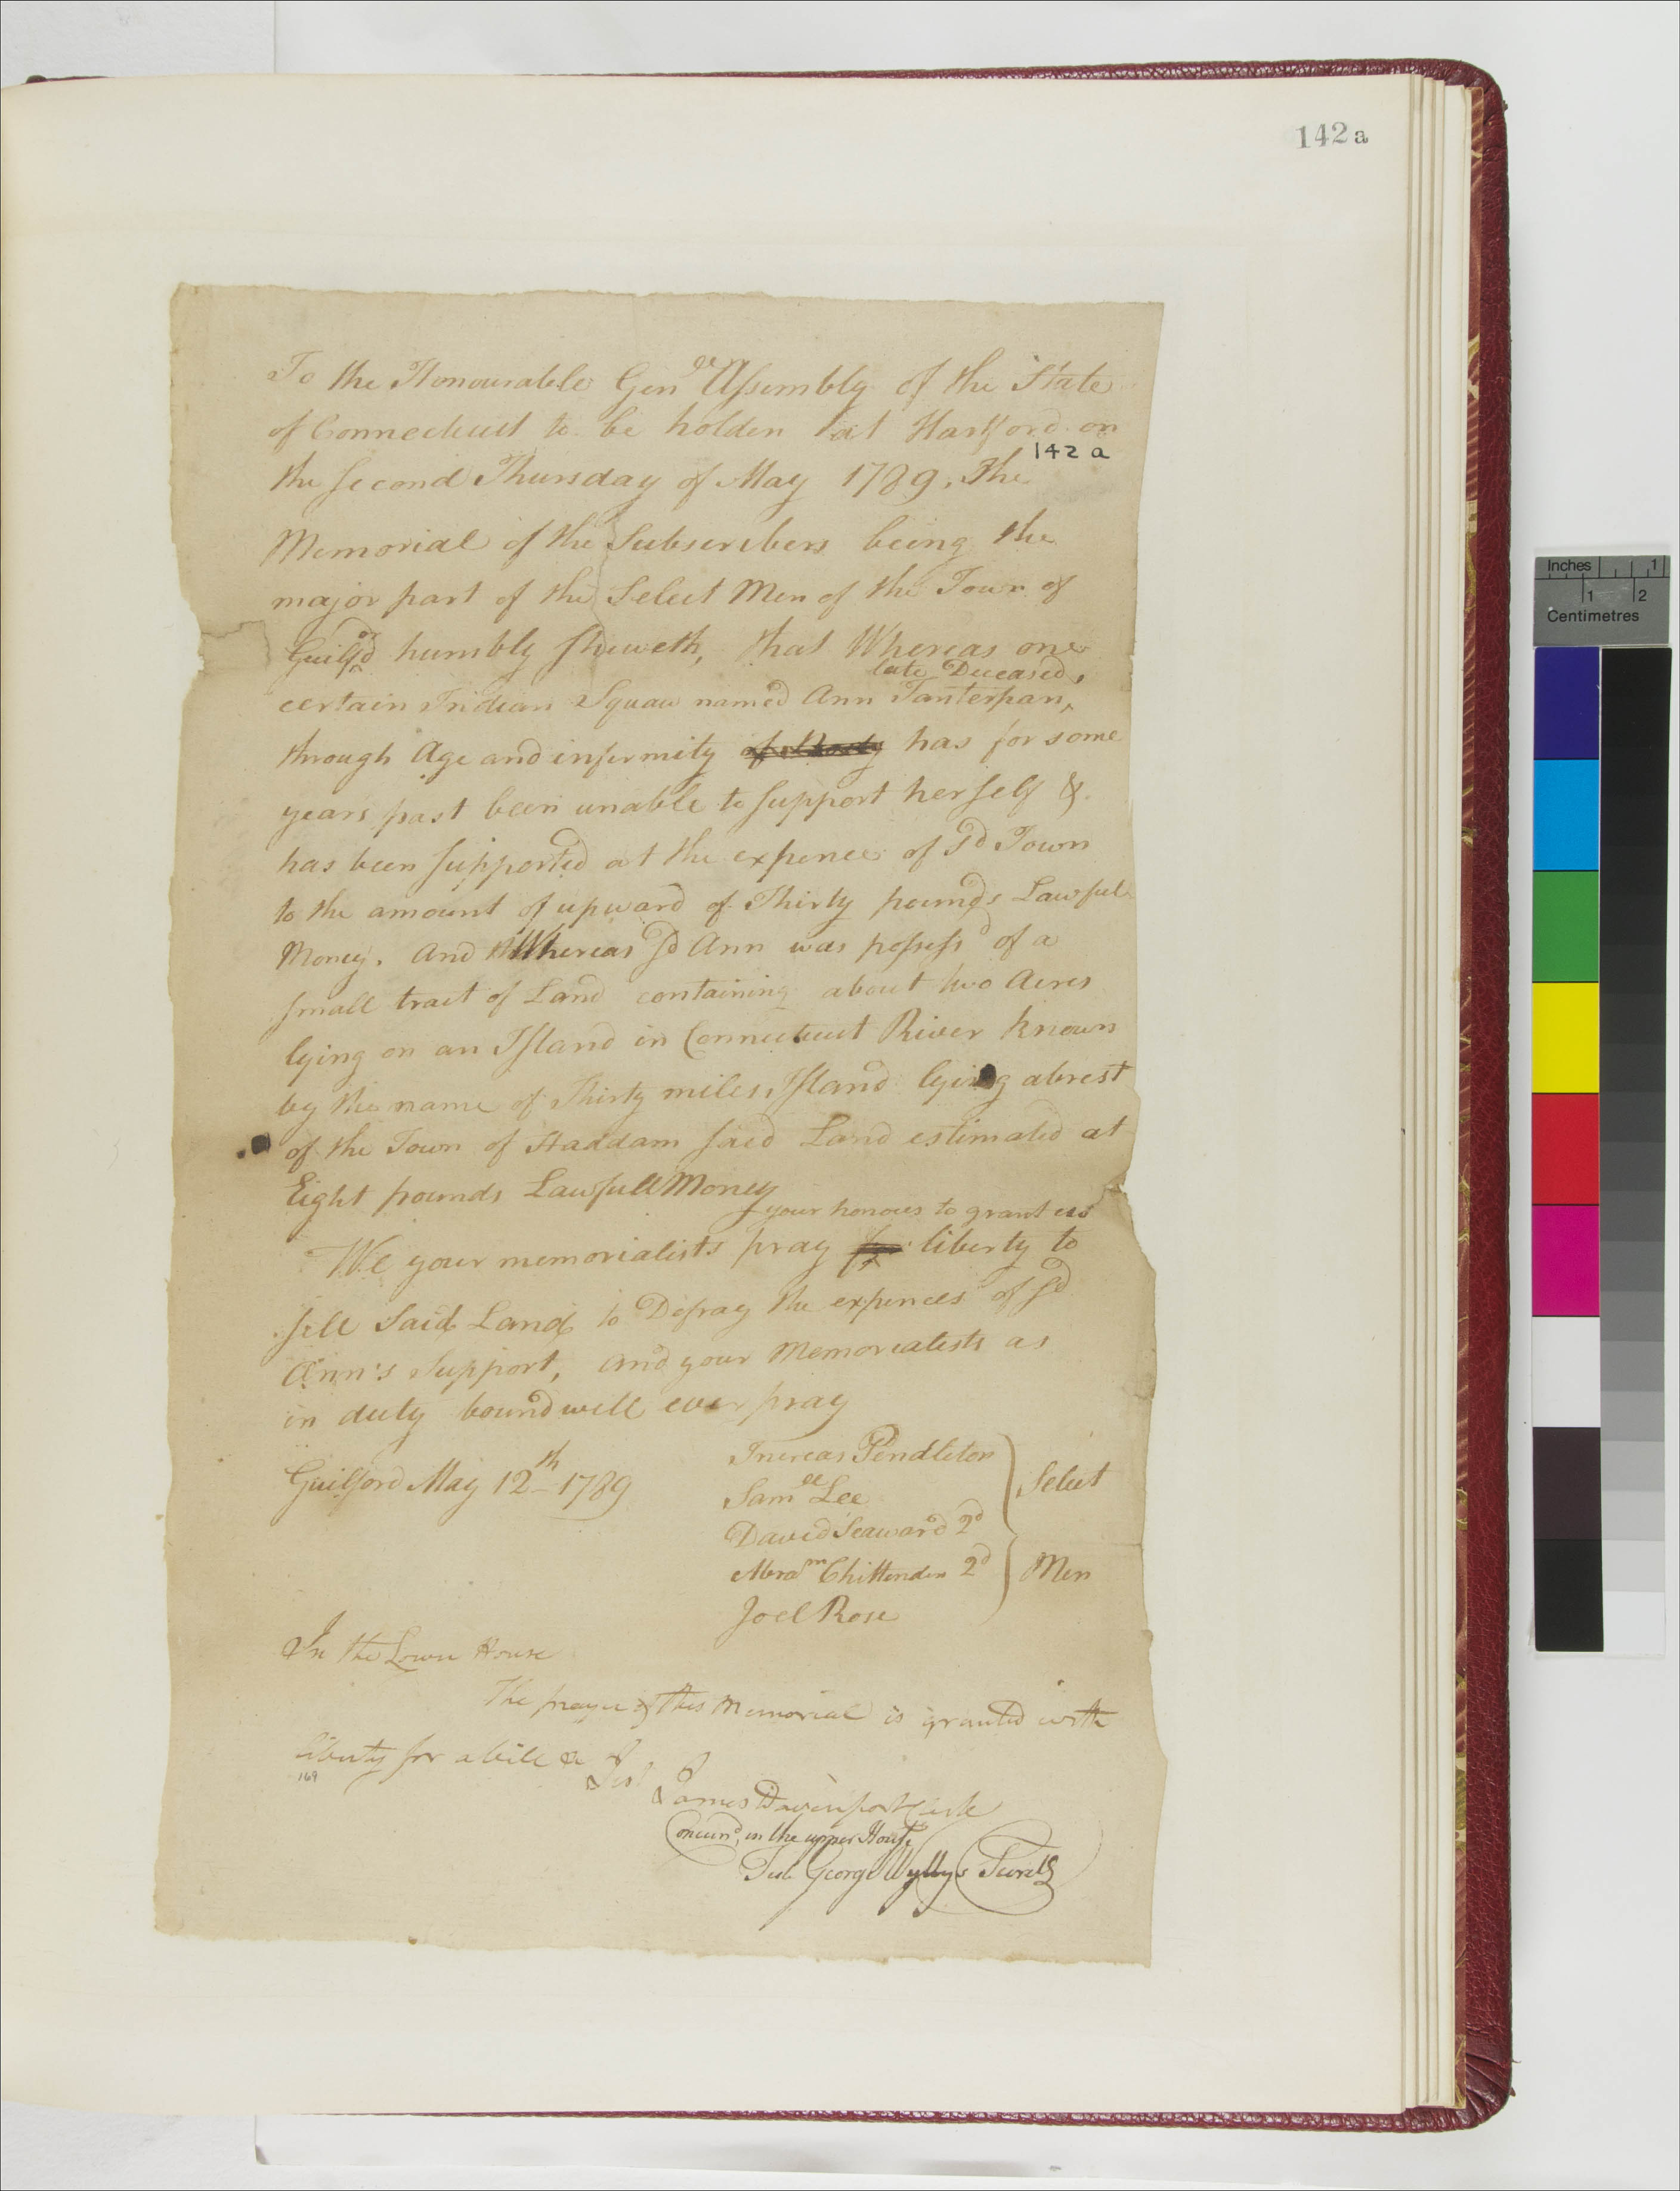 142 a
To the Honourable Genll Assembly of the State
of Connecticut to be holden at Hartford on
142 a
the second Thursday of May 1789. The
Memorial of the Subscribers being the
major part of the Select Men of the Town of
Guilford humbly sheweth, that Whereas one
late Deceased,
certain Indian Squaw named Ann Tanterpan,
through Age and infirmity of Body has for some
years past been unable to support herself &
has been supported at the expence of sd Town
to the amount of upward of Thirty pounds Lawful
Money. And Whereas sd Ann was possessd of a
small tract of Land containing about two Acres
lying on an Island in Connecticut River known
by the name of Thirty miles Island lying abrest
of the Town of Haddam said Land estimated at
Eight pounds Lawfull Money
your honours to grant us
We your memorialists pray for liberty to
sell Said Land to Defray the expences of sd
Ann's Support, and your Memorialists as
in duty bound will ever pray
Guilford May 12th 1789
Increas Pendleton
Samll Lee
David Seaward 2d
Abram Chittenden 2d
Joel Rose
Select
Men
In the Lower House
The prayer of this Memorial is granted with
liberty for a bill &c
169
Test James Davenport Clerk
Concurd, in the upper House
Test. George Wyllys Secrety
Inches 1
1 2
Centimetres